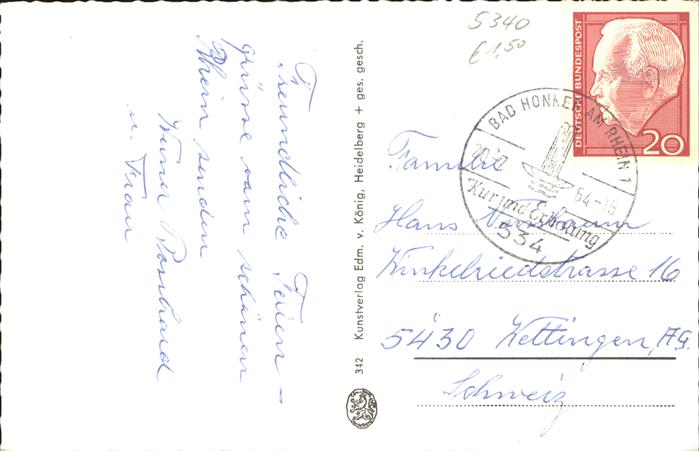 Freundliche Ferien-
grüsse vom schönen
Rhein senden
Werner
u. Frau
342 Kunstverlag Edm. v. König, Heidelberg + ges. gesch.
5340
€1,50
DEUTSCHE BUNDESPOST
20
BAD HONNEF AM RHEIN 1
64-15
Kur und Erholung
534
Familie
Hans
Winkelriedstrasse 16
5430 Wettingen, AG.
Schweiz